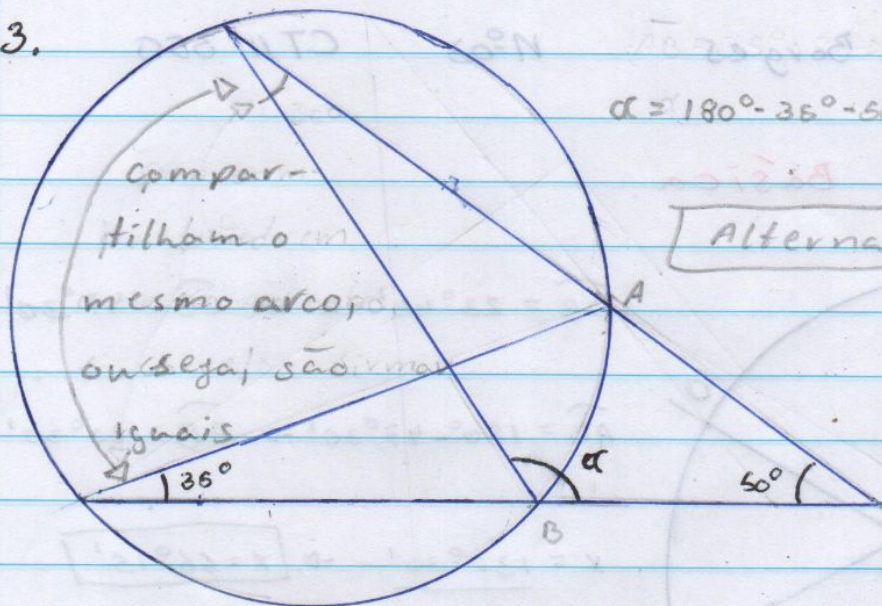 3.
α = 180° - 35° - 5
Alterna
compar-
tilham o
mesmo arco,
ou seja, são
iguais
A
35°
α
50°
B